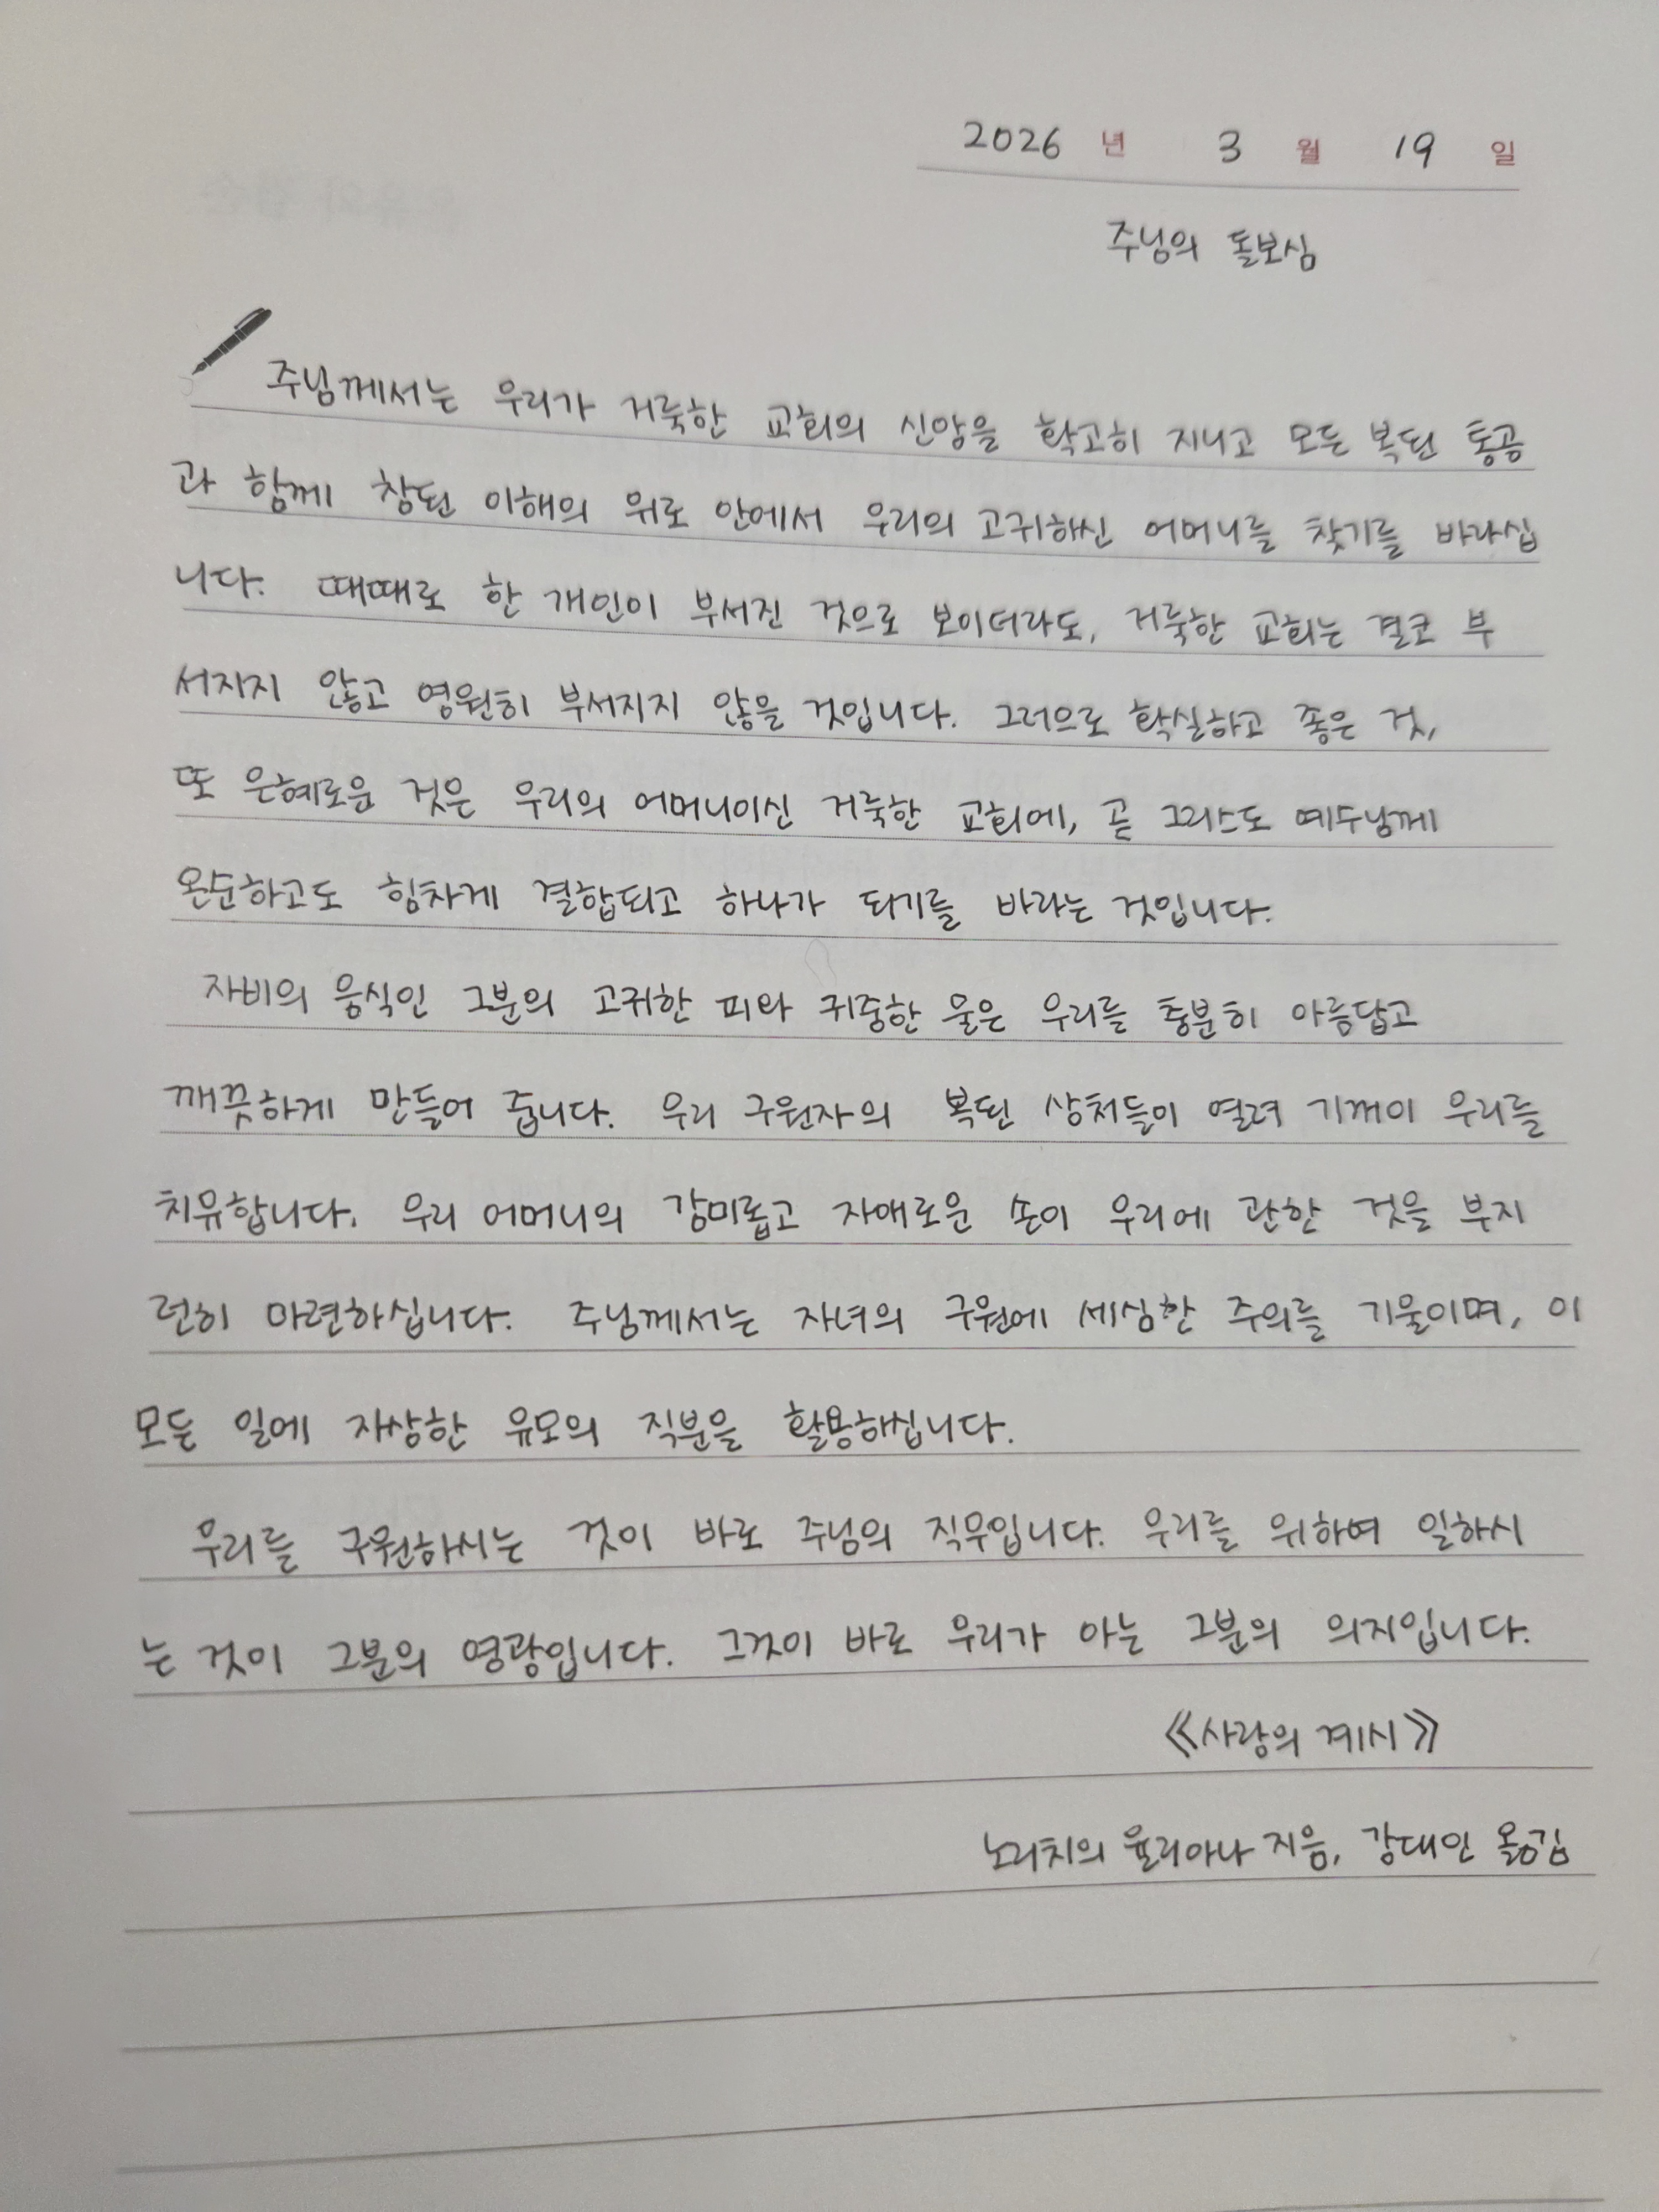 2026 년 3 월 19 일
주님의 돌보심
주님께서는 우리가 거룩한 교회의 신앙을 확고히 지니고 모든 복된 통공
과 함께 참된 이해의 위로 안에서 우리의 고귀하신 어머니를 찾기를 바라십
니다. 때때로 한 개인이 부서진 것으로 보이더라도, 거룩한 교회는 결코 부
서지지 않고 영원히 부서지지 않을 것입니다. 그러므로 확실하고 좋은 것,
또 은혜로운 것은 우리의 어머니이신 거룩한 교회에, 곧 그리스도 예수님께
온순하고도 힘차게 결합되고 하나가 되기를 바라는 것입니다.
자비의 음식인 그분의 고귀한 피와 귀중한 물은 우리를 충분히 아름답고
깨끗하게 만들어 줍니다. 우리 구원자의 복된 상처들이 열려 기꺼이 우리를
치유합니다. 우리 어머니의 감미롭고 자애로운 손이 우리에 관한 것을 부지
런히 마련하십니다. 주님께서는 자녀의 구원에 세심한 주의를 기울이며, 이
모든 일에 자상한 유모의 직분을 활용하십니다.
우리를 구원하시는 것이 바로 주님의 직무입니다. 우리를 위하여 일하시
는 것이 그분의 영광입니다. 그것이 바로 우리가 아는 그분의 의지입니다.
《사랑의 계시》
노리치의 율리아나 지음, 강대인 옮김